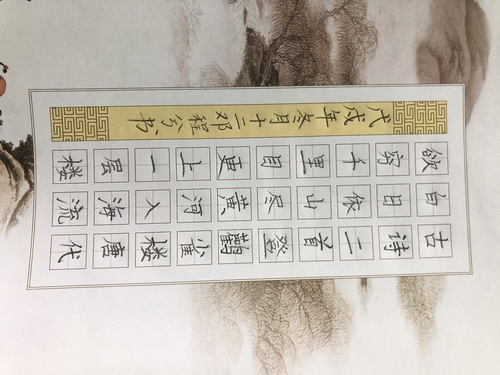 古诗二首登鹳雀楼唐代
白日依山尽黄河入海流
欲穷千里目更上一层楼
戊戌年冬月十二邓程兮书